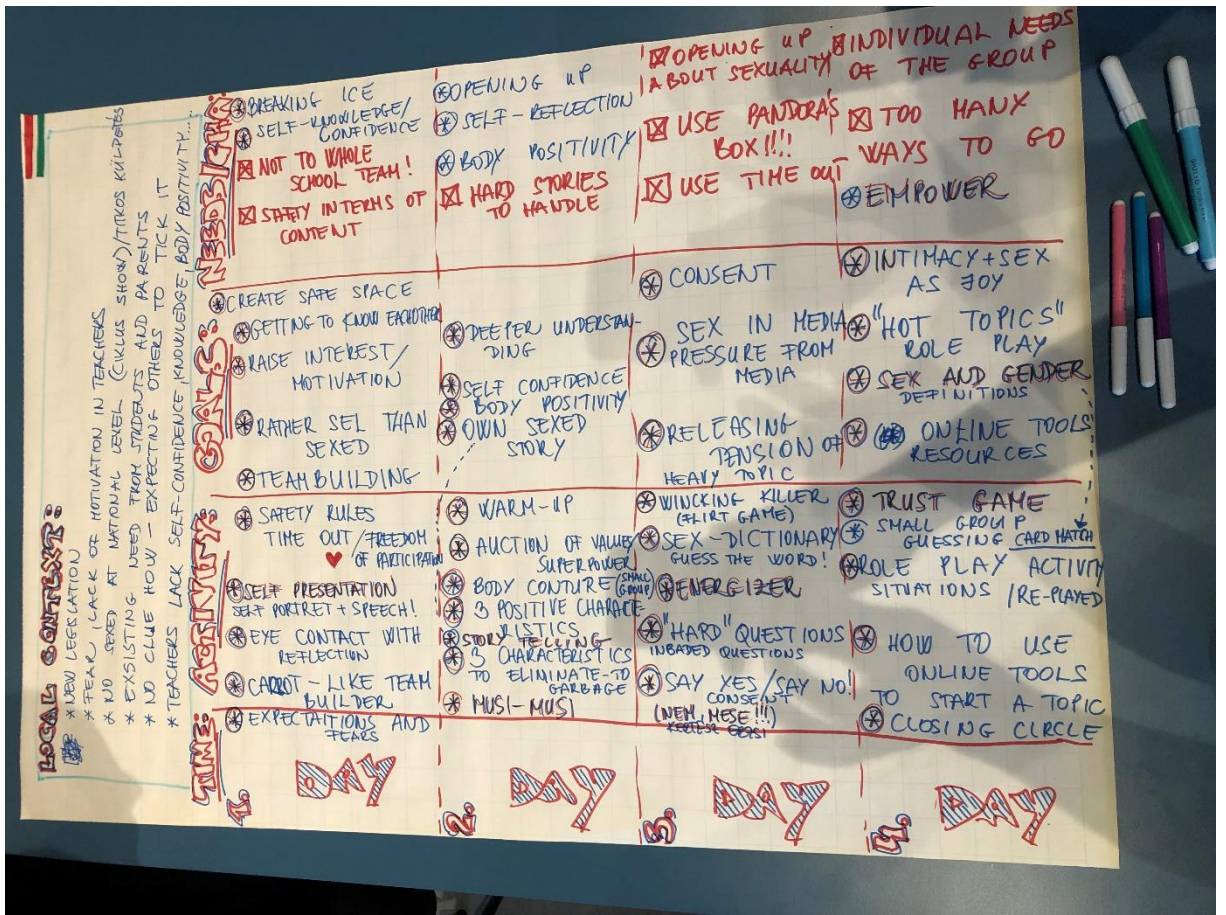 LOCAL CONTEXT:
* NEW LEGISLATION
* FEAR / LACK OF MOTIVATION IN TEACHERS
* NO SEXED AT NATIONAL LEVEL (CIKLUS SHOW)/TITKOS KÜLDETÉS
* EXSISTING NEED FROM STUDENTS AND PARENTS
* NO CLUE HOW - EXPECTING OTHERS TO TICK IT
* TEACHERS LACK SELF-CONFIDENCE, KNOWLEDGE, BODY POSITIVITY...
TIME:
ACTIVITY:
GOALS:
1. DAY
* BREAKING ICE
* SELF-KNOWLEDGE/
CONFIDENCE
NOT TO WHOLE
SCHOOL TEAM!
SAFETY IN TERMS OF
CONTENT
* CREATE SAFE SPACE
* GETTING TO KNOW EACHOTHER
* RAISE INTEREST/
MOTIVATION
* RATHER SEL THAN
SEXED
* TEAMBUILDING
* SAFETY RULES
TIME OUT/FREEDOM
♥ OF PARTICIPATION
* SELF PRESENTATION
SELF PORTRET + SPEECH!
* EYE CONTACT WITH
REFLECTION
* CARROT - LIKE TEAM
BUILDER
* EXPECTAITIONS AND
FEARS
2. DAY
* OPENING UP
* SELF-REFLECTION
* BODY POSITIVITY
HARD STORIES
TO HANDLE
* DEEPER UNDERSTAN-
DING
* SELF CONFIDENCE
* BODY POSITIVITY
* OWN SEXED
STORY
* WARM-UP
* AUCTION OF VALUES/
SUPERPOWER
* BODY CONTURE (SMALL
GROUP)
* 3 POSITIVE CHARACTE
RISTICS
* STORY TELLING
* 3 CHARACTERISTICS
TO ELIMINATE-TO
GARBAGE
* MUSI-MUSI
3. DAY
OPENING UP
ABOUT SEXUALITY
USE PANDORA'S
BOX!!!
USE TIME OUT
* CONSENT
* SEX IN MEDIA
PRESSURE FROM
MEDIA
* RELEASING
TENSION OF
HEAVY TOPIC
* WINCKING KILLER
(FLIRT GAME)
* SEX-DICTIONARY
GUESS THE WORD!
* ENERGIZER
* "HARD" QUESTIONS
INBADED QUESTIONS
* SAY YES/SAY NO!
CONSENT
(NEM, MESE!!!)
4. DAY
INDIVIDUAL NEEDS
OF THE GROUP
TOO MANY
WAYS TO GO
* EMPOWER
* INTIMACY + SEX
AS JOY
* "HOT TOPICS"
ROLE PLAY
* SEX AND GENDER
DEFINITIONS
* ONLINE TOOLS
RESOURCES
* TRUST GAME
* SMALL GROUP
GUESSING CARD MATCH
* ROLE PLAY ACTIVITY
SITUATIONS /RE-PLAYED
* HOW TO USE
ONLINE TOOLS
TO START A TOPIC
* CLOSING CIRCLE